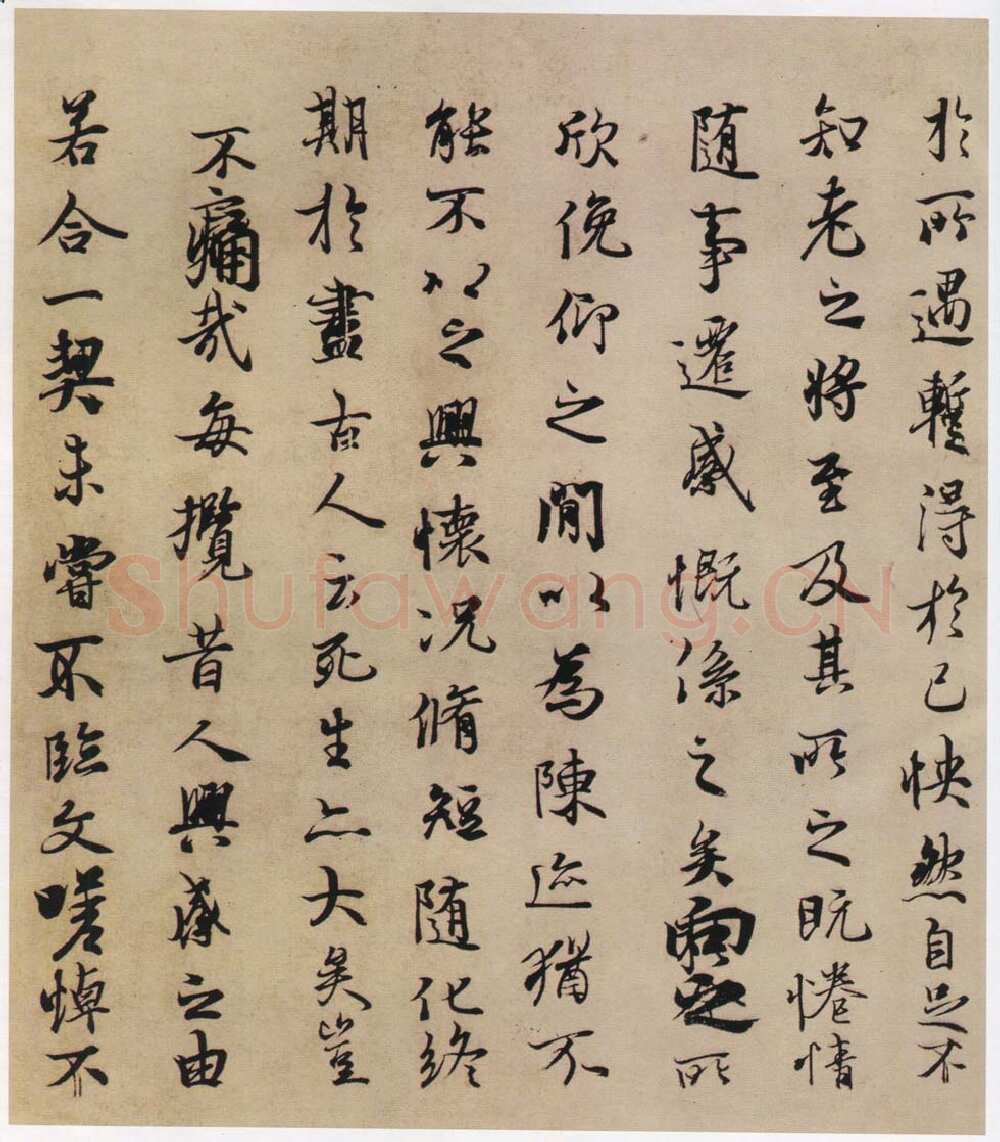 於所遇暫得於己怏然自足不
知老之將至及其所之既惓情
随事遷感慨係之矣向之所
欣俛仰之閒以為陳迹猶不
能不以之興懷況脩短随化終
期於盡古人云死生亦大矣豈
不痛哉每攬昔人興感之由
若合一契未嘗不臨文嗟悼不
Shufawang.CN